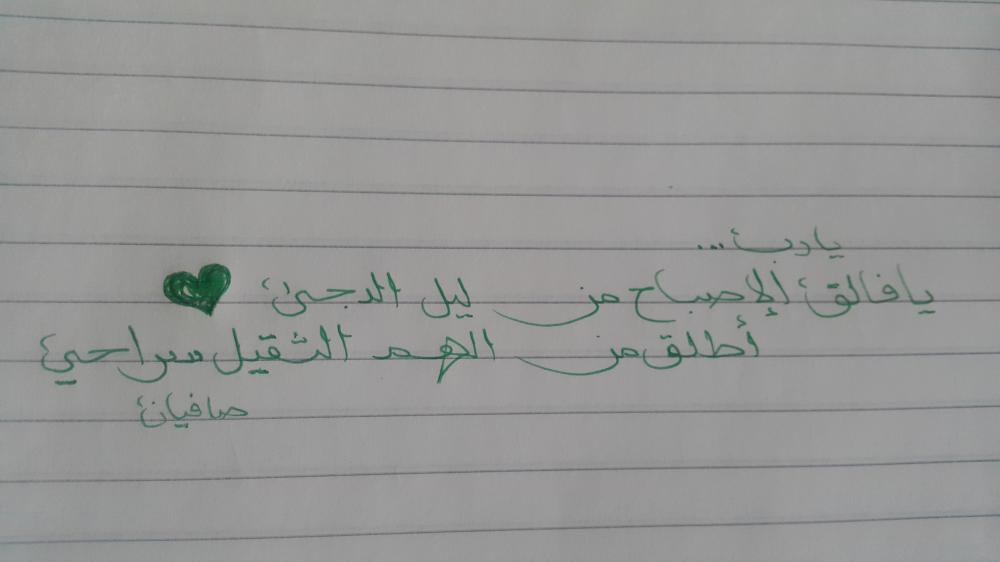 يارب...
يا فالق الإصباح من ليل الدجى
أطلق من الهم الثقيل سراحي
صافيان